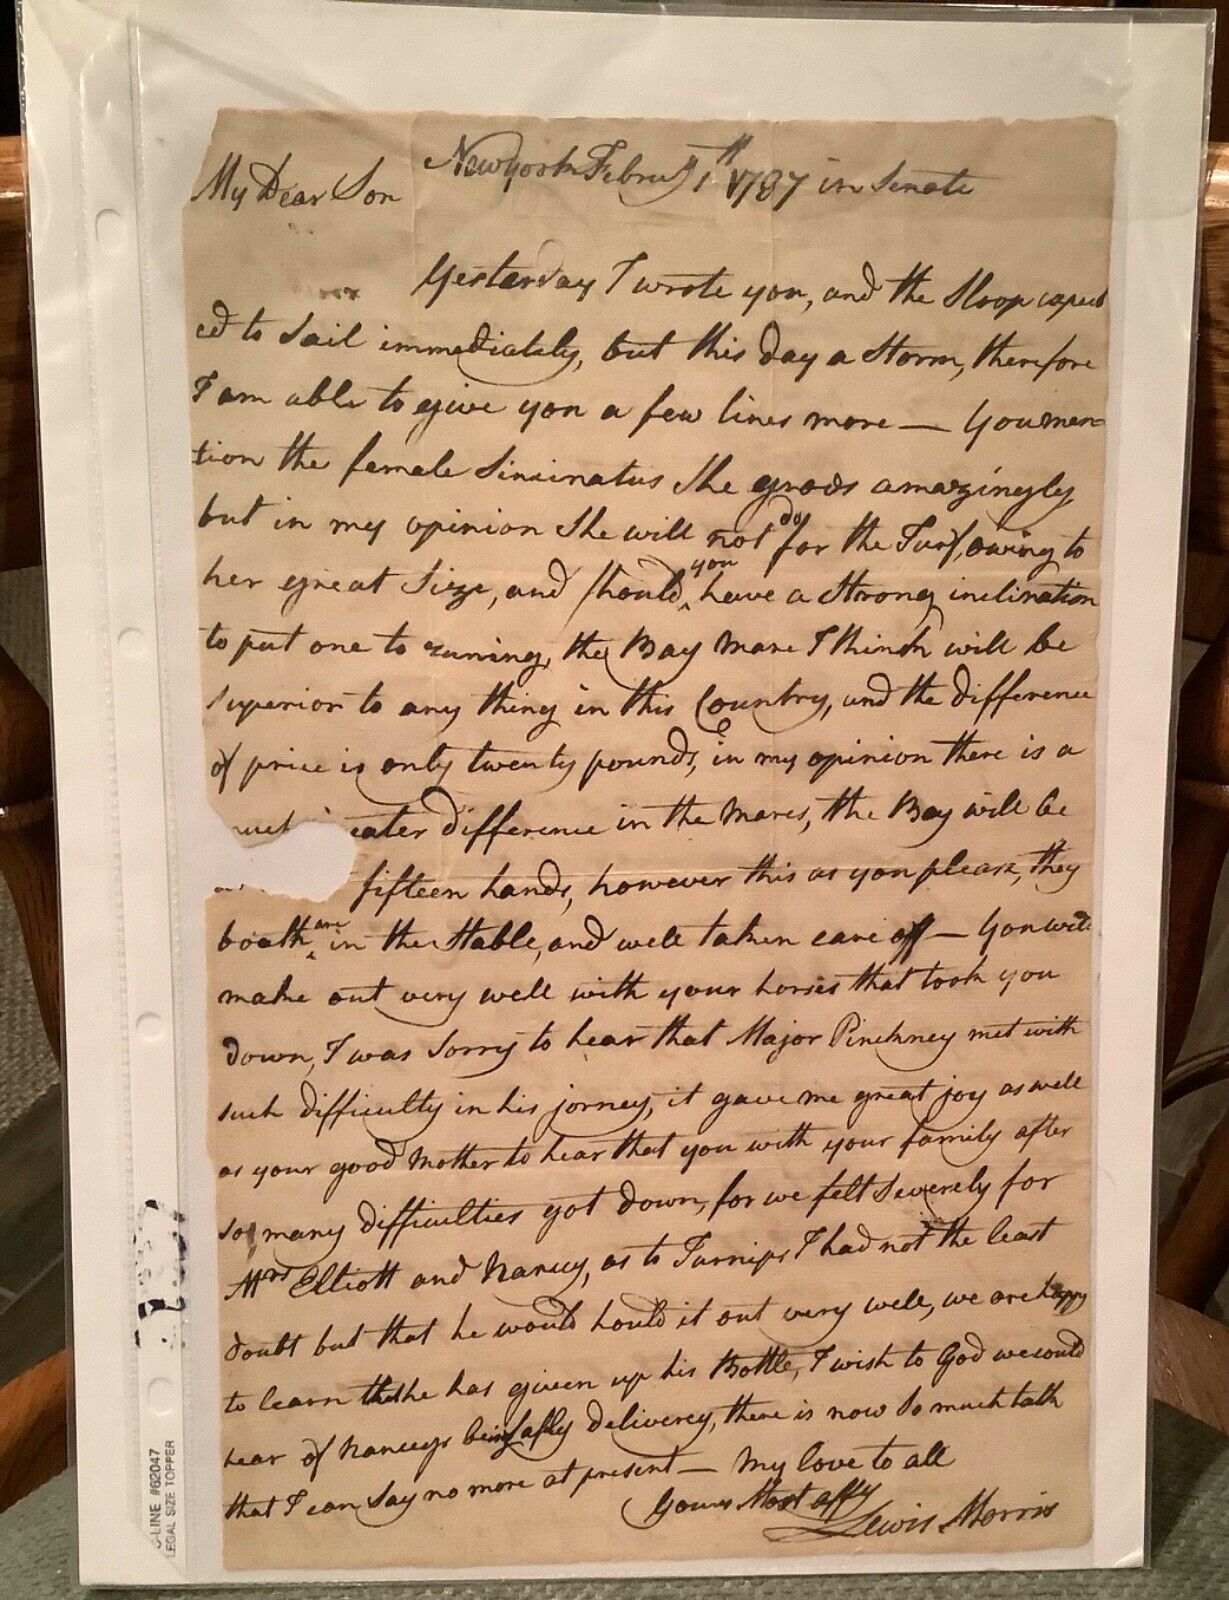 New York Febru 1th 1787 in Senate
My Dear Son
Yesterday I wrote you, and the Sloop expect
ed to Sail immediately, but this day a Storm, therefore
I am able to give you a few lines more — You men=
tion the female Sincinatus She grows amazingly,
but in my opinion She will not do for the Turf, owing to
her great Size, and should you have a Strong inclination
to put one to runing, the Bay Mare I think will be
superior to any thing in this Country, and the difference
of price is only twenty pounds, in my opinion there is a
eater difference in the Mares, the Bay will be
fifteen hands, however this as you please, they
boath are in the Stable, and well taken care off — You will
make out very well with your horses that took you
down, I was Sorry to hear that Major Pinckney met with
such difficulty in his jorney, it gave me great joy as well
as your good Mother to hear that you with your family after
so many difficulties got down, for we felt Severely for
Mrs Elliott and Nancy, as to Turnips I had not the least
doubt but that he would hould it out very well, we are happy
to learn he has given up his Bottle, I wish to God we could
hear of Nanceys being safly deliverey, there is now So much talk
that I can Say no more at present — My love to all
Yours Most affy
Lewis Morris
C-LINE #62047
LEGAL SIZE TOPPER